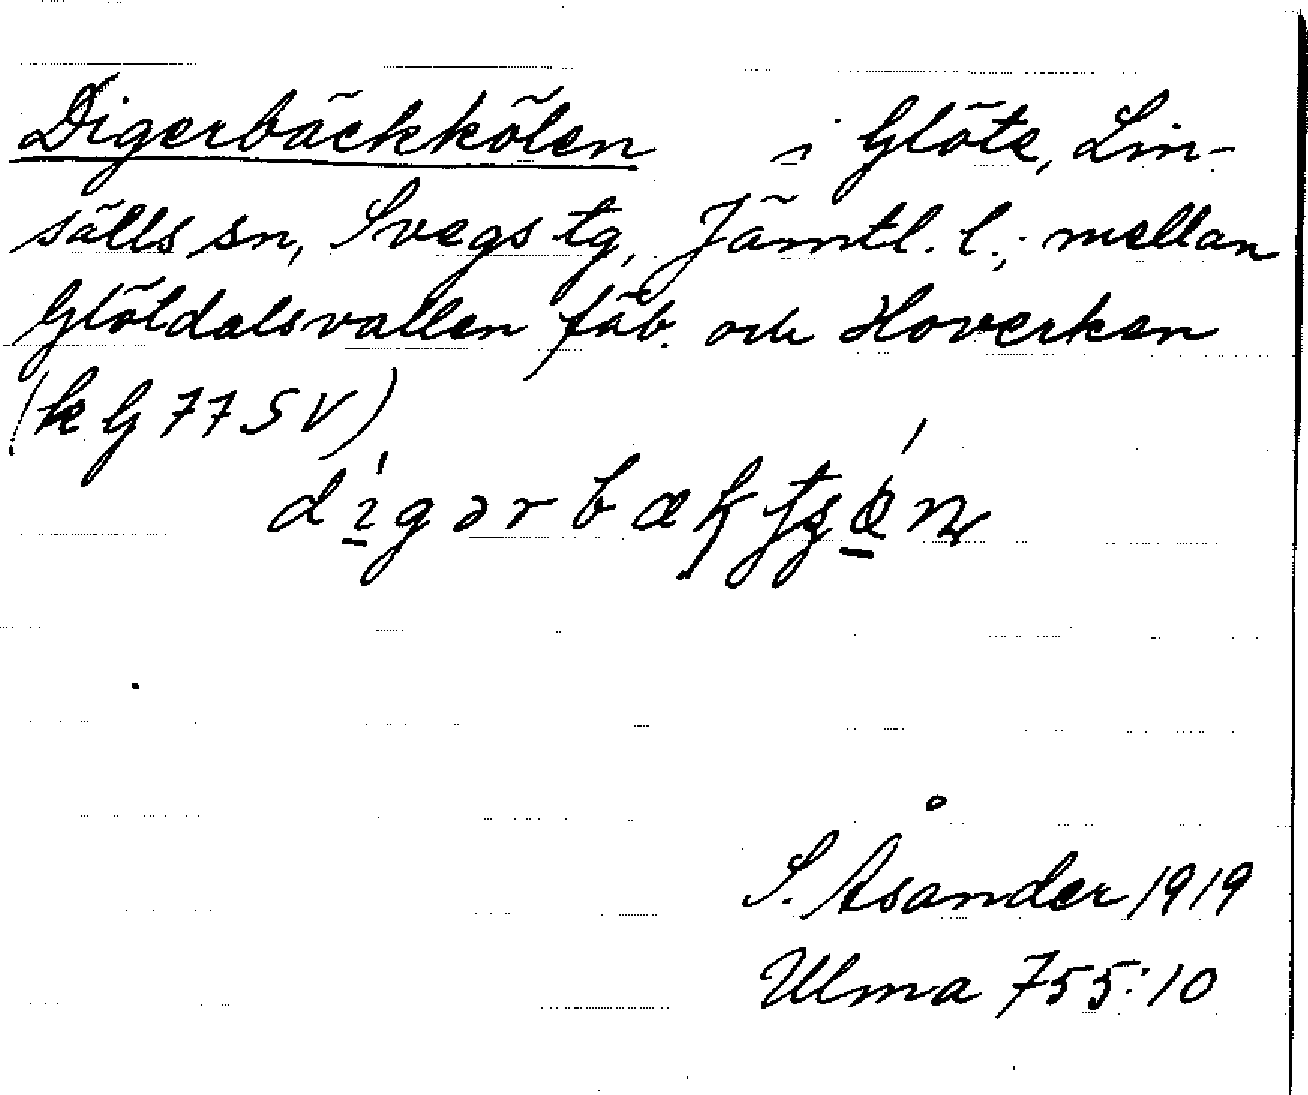 Digerbäckkölen i Glöte, Lin-
sälls sn, Svegs tg, Jämtl. l.; mellan
Glöldalsvallen fäb. och Hoverken
(k G 77 SV)
S. Åsander 1919
Ulma 755:10